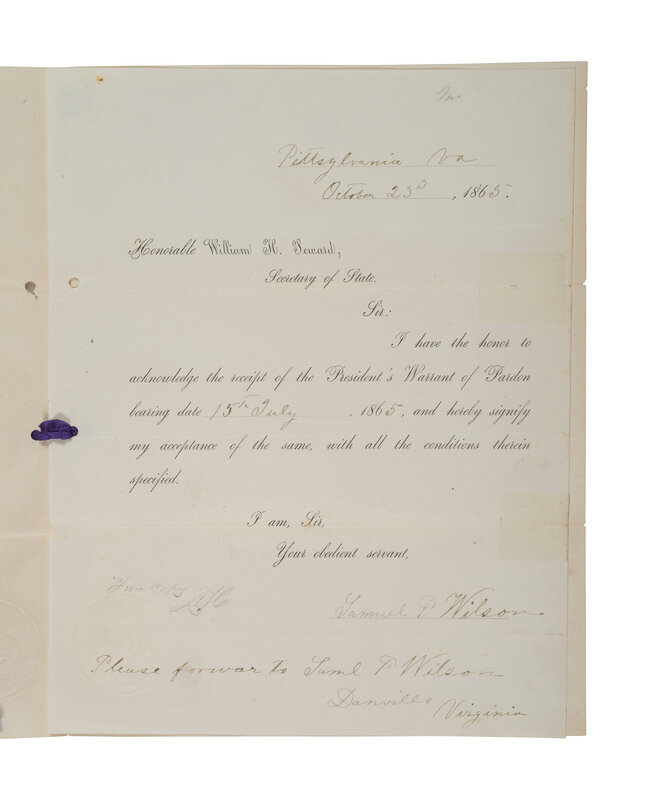 Pittsylvania Va
October 23d, 1865.
Honorable William H. Seward,
Secretary of State.
Sir:
I have the honor to
acknowledge the receipt of the President's Warrant of Pardon
bearing date 15th July, 1865, and hereby signify
my acceptance of the same, with all the conditions therein
specified.
I am, Sir,
Your obedient servant,
True Copy
Samuel P Wilson
Please forwar to Saml P Wilson
Danville
Virginia